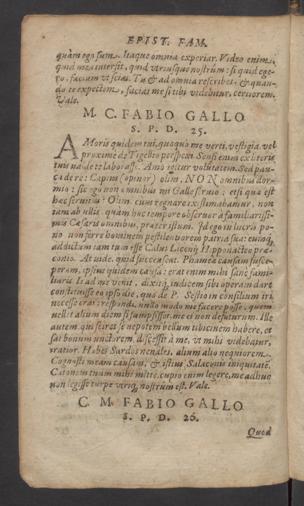 EPIST. FAM.
quàm ego sum. Itaque omnia experiar. Video enim,
quid mea intersit, quid utriusque nostrum: si quid ege-
ro, faciam ut scias. Tu & ad omnia rescribes, & quan-
do te expectem, facias me si tibi videbitur, certiorem.
Vale.
M. C. FABIO GALLO
S. P. D. 25.
AMoris quidem tui, quoquo me verti, vestigia. vel
proximè de Tigellio perspexi. Sensi enim ex literis
tuis valde te laborasse. Amo igitur voluntatem. Sed pau-
ca de re: Cipius (opinor) olim, NON omnibus dor-
mio: sic ego non omnibus mi Galle servio: etsi quæ est
hæc servitus? Olim cum regnare existimabamur, non
tam ab ullis, quàm hoc tempore observor à familiarissi-
mis Cæsaris omnibus, præter istum. Id ego in lucris po-
no non ferre hominem pestilentiorem patria sua: eumq;
addictum iam tum esse Calvi Licinij Hipponacteo præ-
conio. At vide, quid succenseat. Phameæ causam susce-
peram, ipsius quidem causa: erat enim mihi sanè fami-
liaris. Is ad me venit, dixitq; iudicem sibi operam dare
constituisse eo ipso die, quo de P. Sestio in consilium iri
necesse erat: respondi, nullo modo me facere posse, quem
vellet alium diem si sumpsisset, me ei non defuturum. Ille
autem qui sciret se nepotem bellum tibicinem habere, et
sat bonum unctorem, discessit à me, ut mihi videbatur,
iratior. Habes Sardos venales, alium alio nequiorem.
Cognosti meam causam, & istius Salaconis iniquitatē.
Catonem tuum mihi mitte, cupio enim legere, me adhuc
non legisse turpe utriq; nostrum est. Vale.
C. M. FABIO GALLO
S. P. D. 26.
Quod